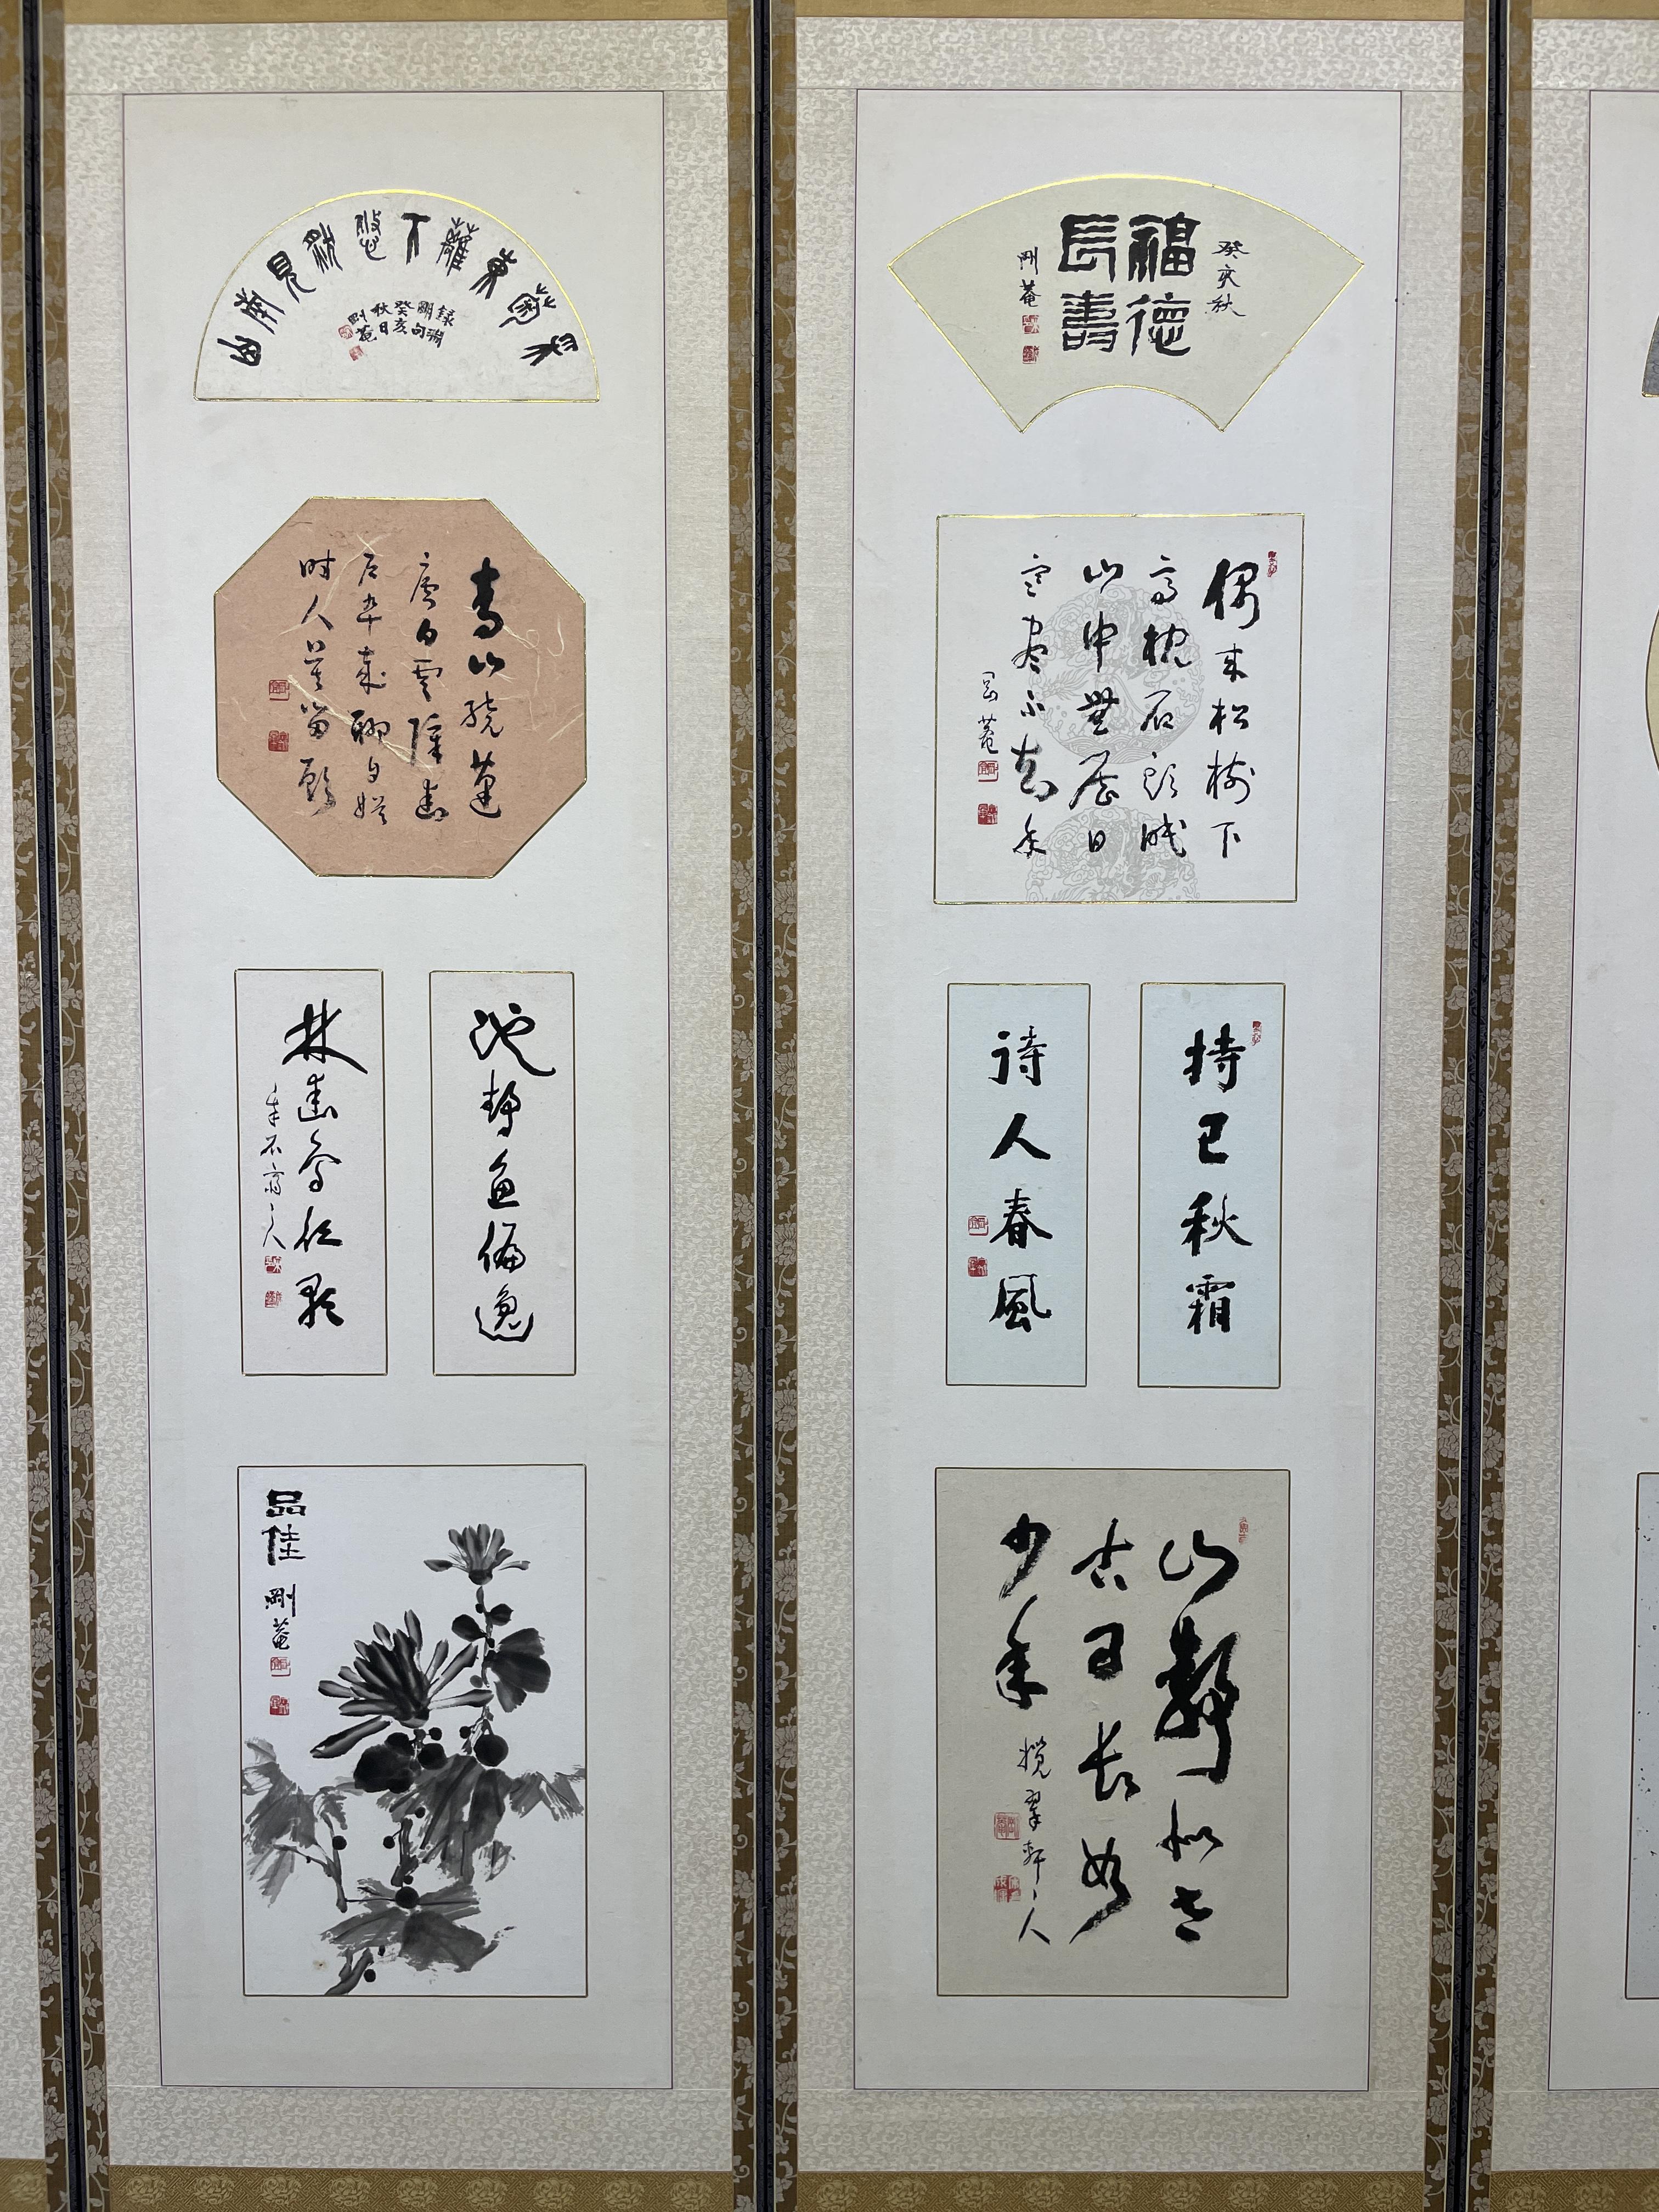 癸亥秋
福德
長壽
剛菴
偶來松樹下
高枕石頭眠
山中無曆日
寒盡不知年
剛菴
持己秋霜
待人春風
山靜似太
古日長如
少年
攬翠軒
采菊東籬下悠然見南山
錄淵
明句
癸亥
秋日
剛菴
青山繞蓬
廬白雲障幽
戶卒歲聊自娛
時人莫留顧
池靜魚偏逸
林幽鳥任歌
品佳
剛菴